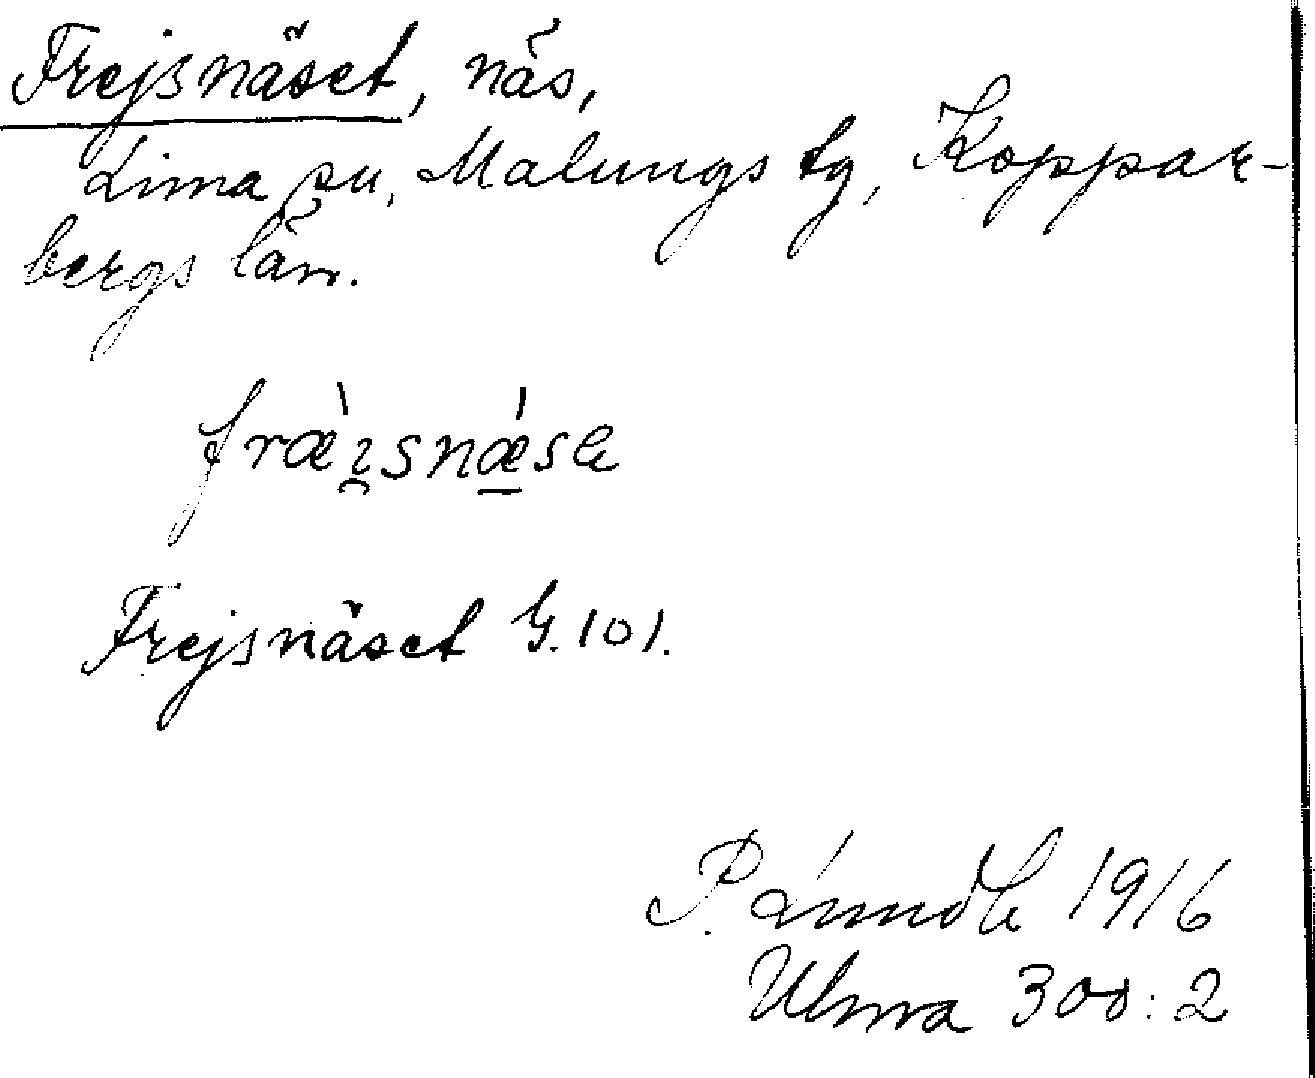 Frejsnäset, näs,
Lima sn, Malungs tg, Koppar-
bergs län.
fræ̀ı̯snǽse
Frejsnäset G. 101.
P. Linde 1916
Ulma 300:2